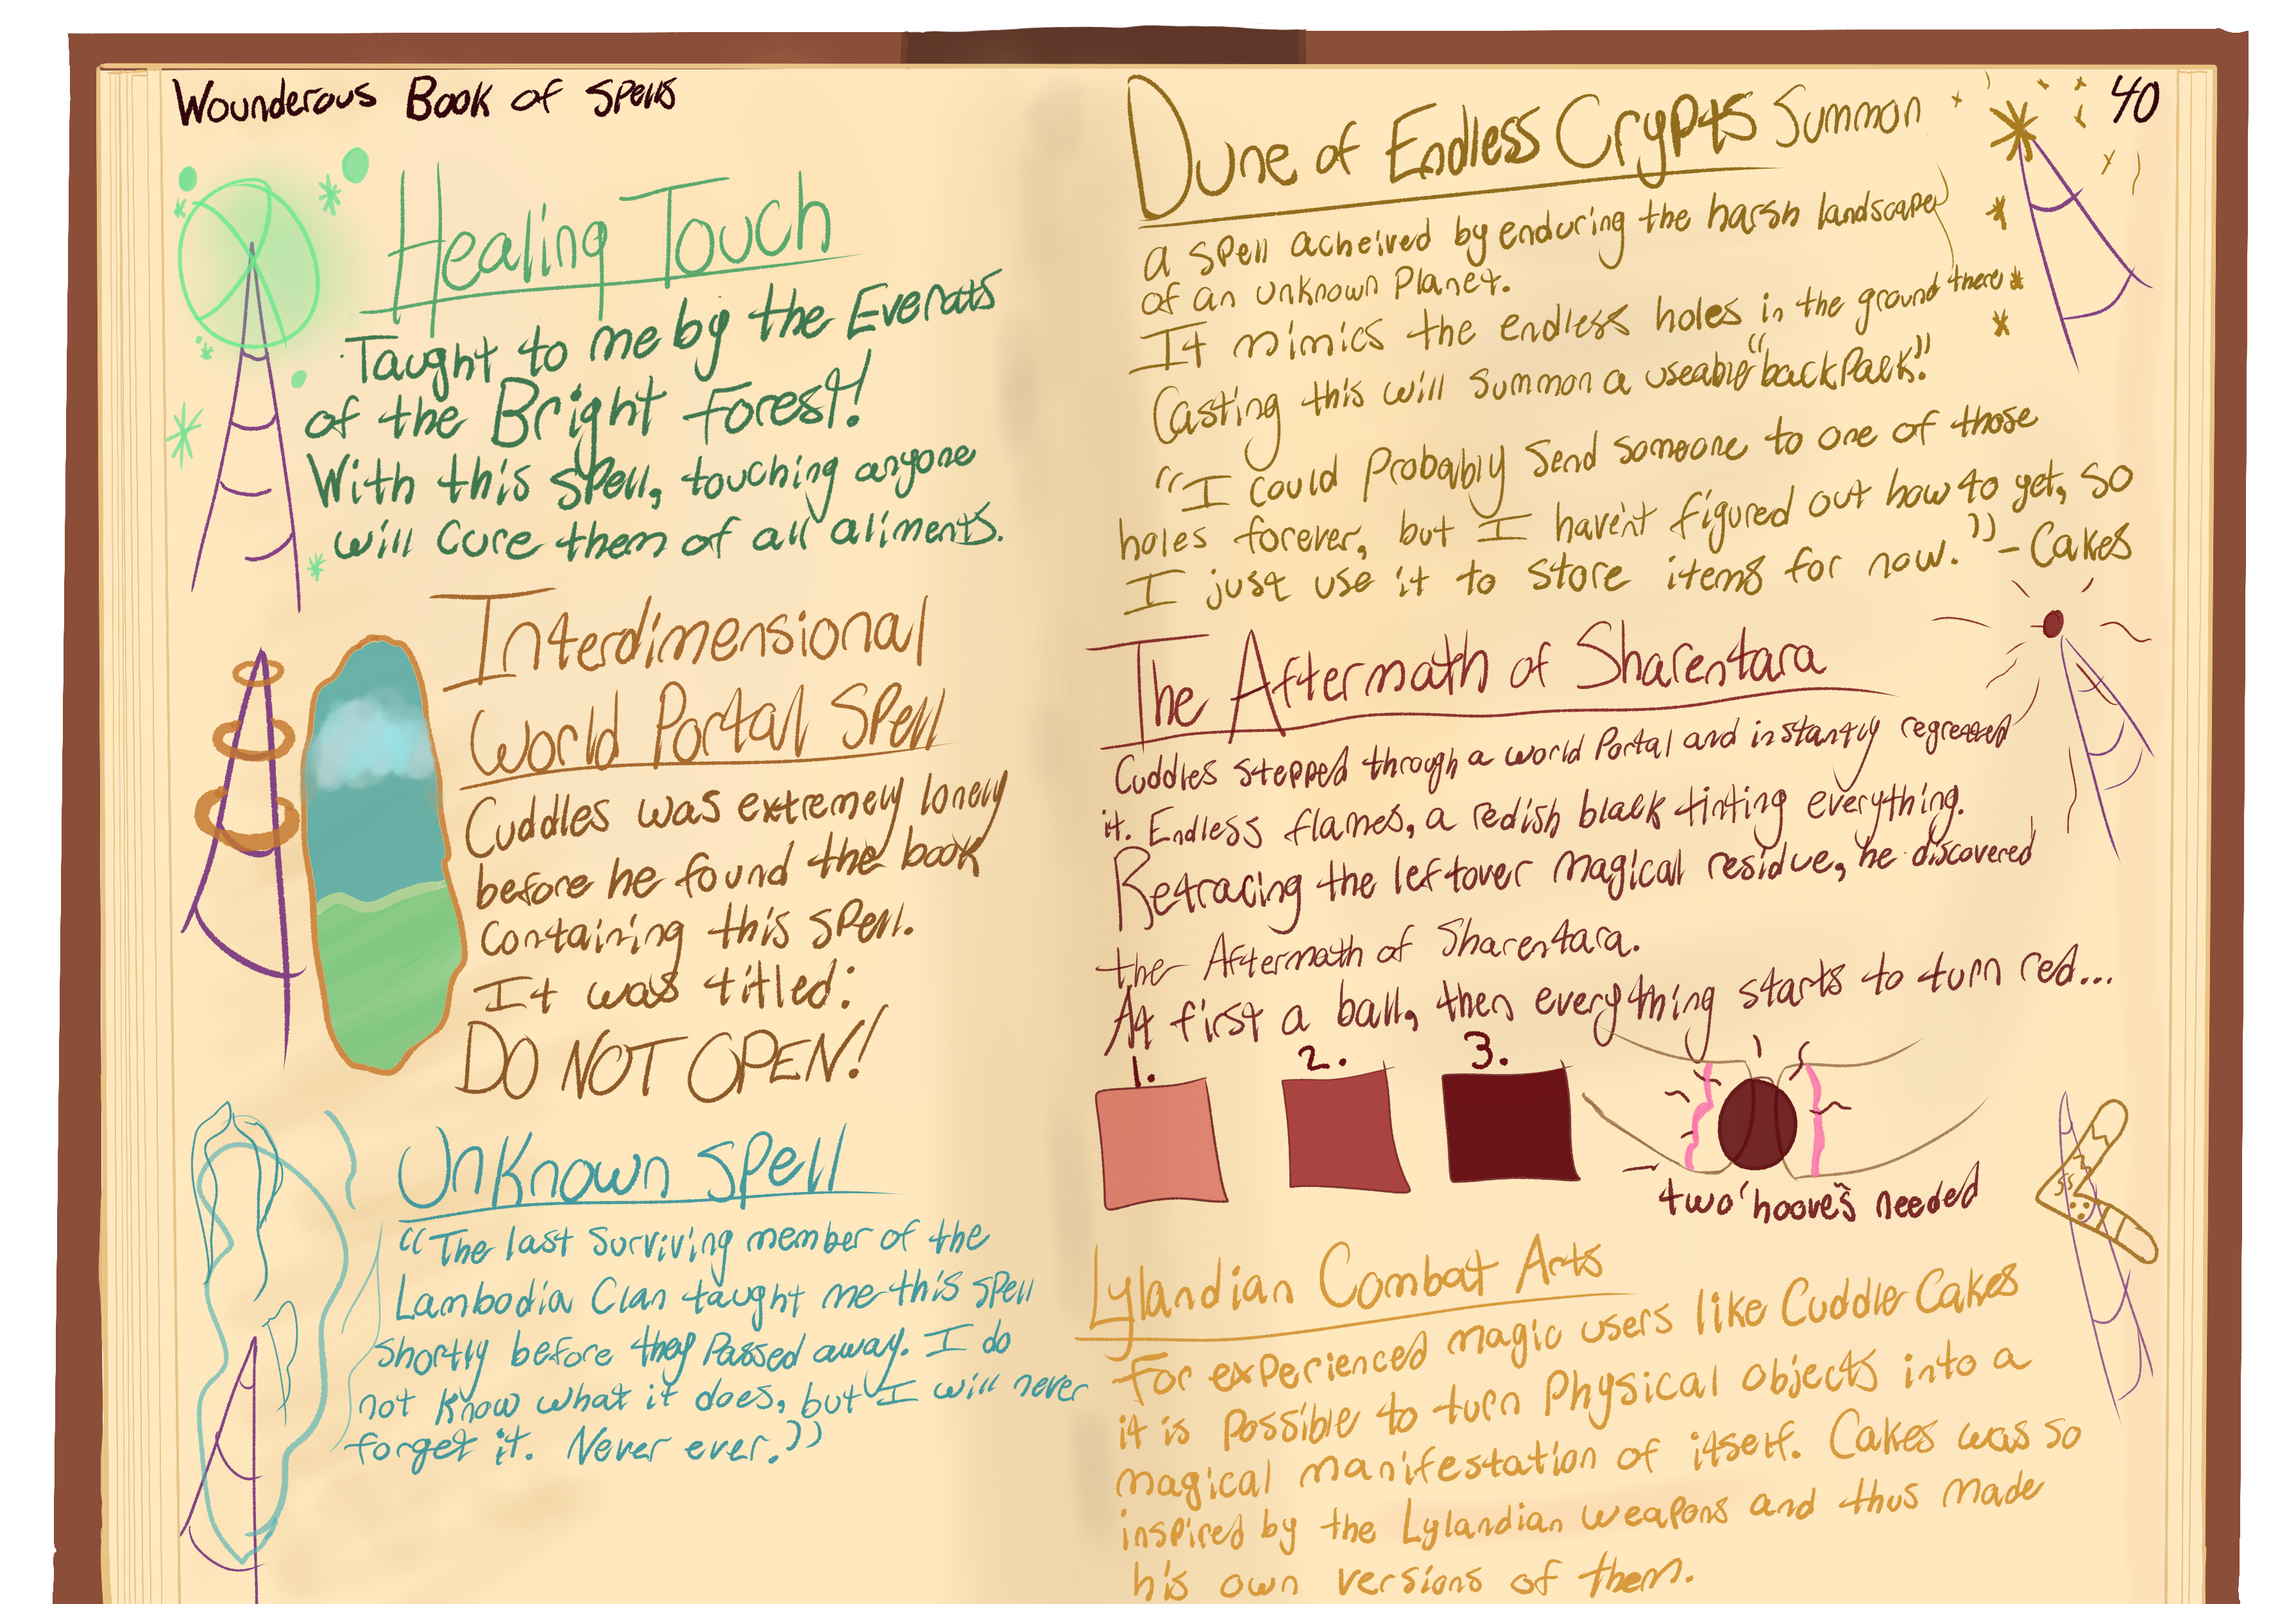 Wounderous Book of Spells
Healing Touch
Taught to me by the Everats
of the Bright Forest!
With this spell, touching anyone
will cure them of all aliments.
Interdimensional
World Portal Spell
Cuddles was extremely lonely
before he found the book
containing this spell.
It was titled:
DO NOT OPEN!
Unknown Spell
"The last surviving member of the
Lambodia Clan taught me this spell
shortly before they passed away. I do
not know what it does, but I will never
forget it. Never ever."
40
Dune of Endless Crypts Summon
a spell acheived by enduring the harsh landscape
of an unknown Planet.
It mimics the endless holes in the ground there
Casting this will summon a useable "backpack."
"I could probably send someone to one of those
holes forever, but I haven't figured out how to yet, so
I just use it to store items for now." - Cakes
The Aftermath of Sharentara
Cuddles stepped through a world portal and instantly regretted
it. Endless flames, a redish black tinting everything.
Retracing the leftover magical residue, he discovered
the Aftermath of Sharentara.
At first a ball, then everything starts to turn red...
1. 2. 3.
two 'hooves' needed
Lylandian Combat Arts
For experienced magic users like Cuddle Cakes
it is possible to turn physical objects into a
magical manifestation of itself. Cakes was so
inspired by the Lylandian weapons and thus made
his own versions of them.